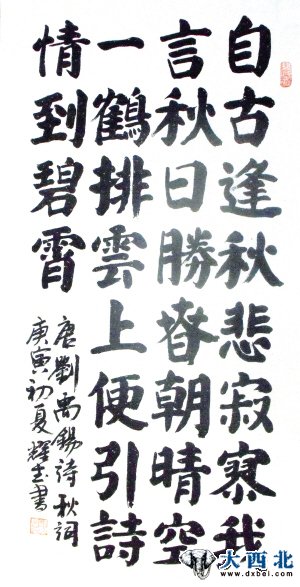 自古逢秋悲寂寥我
言秋日勝春朝晴空
一鶴排雲上便引詩
情到碧霄
唐劉禹錫詩秋詞
庚寅初夏書
大西北
www.dxbei.com